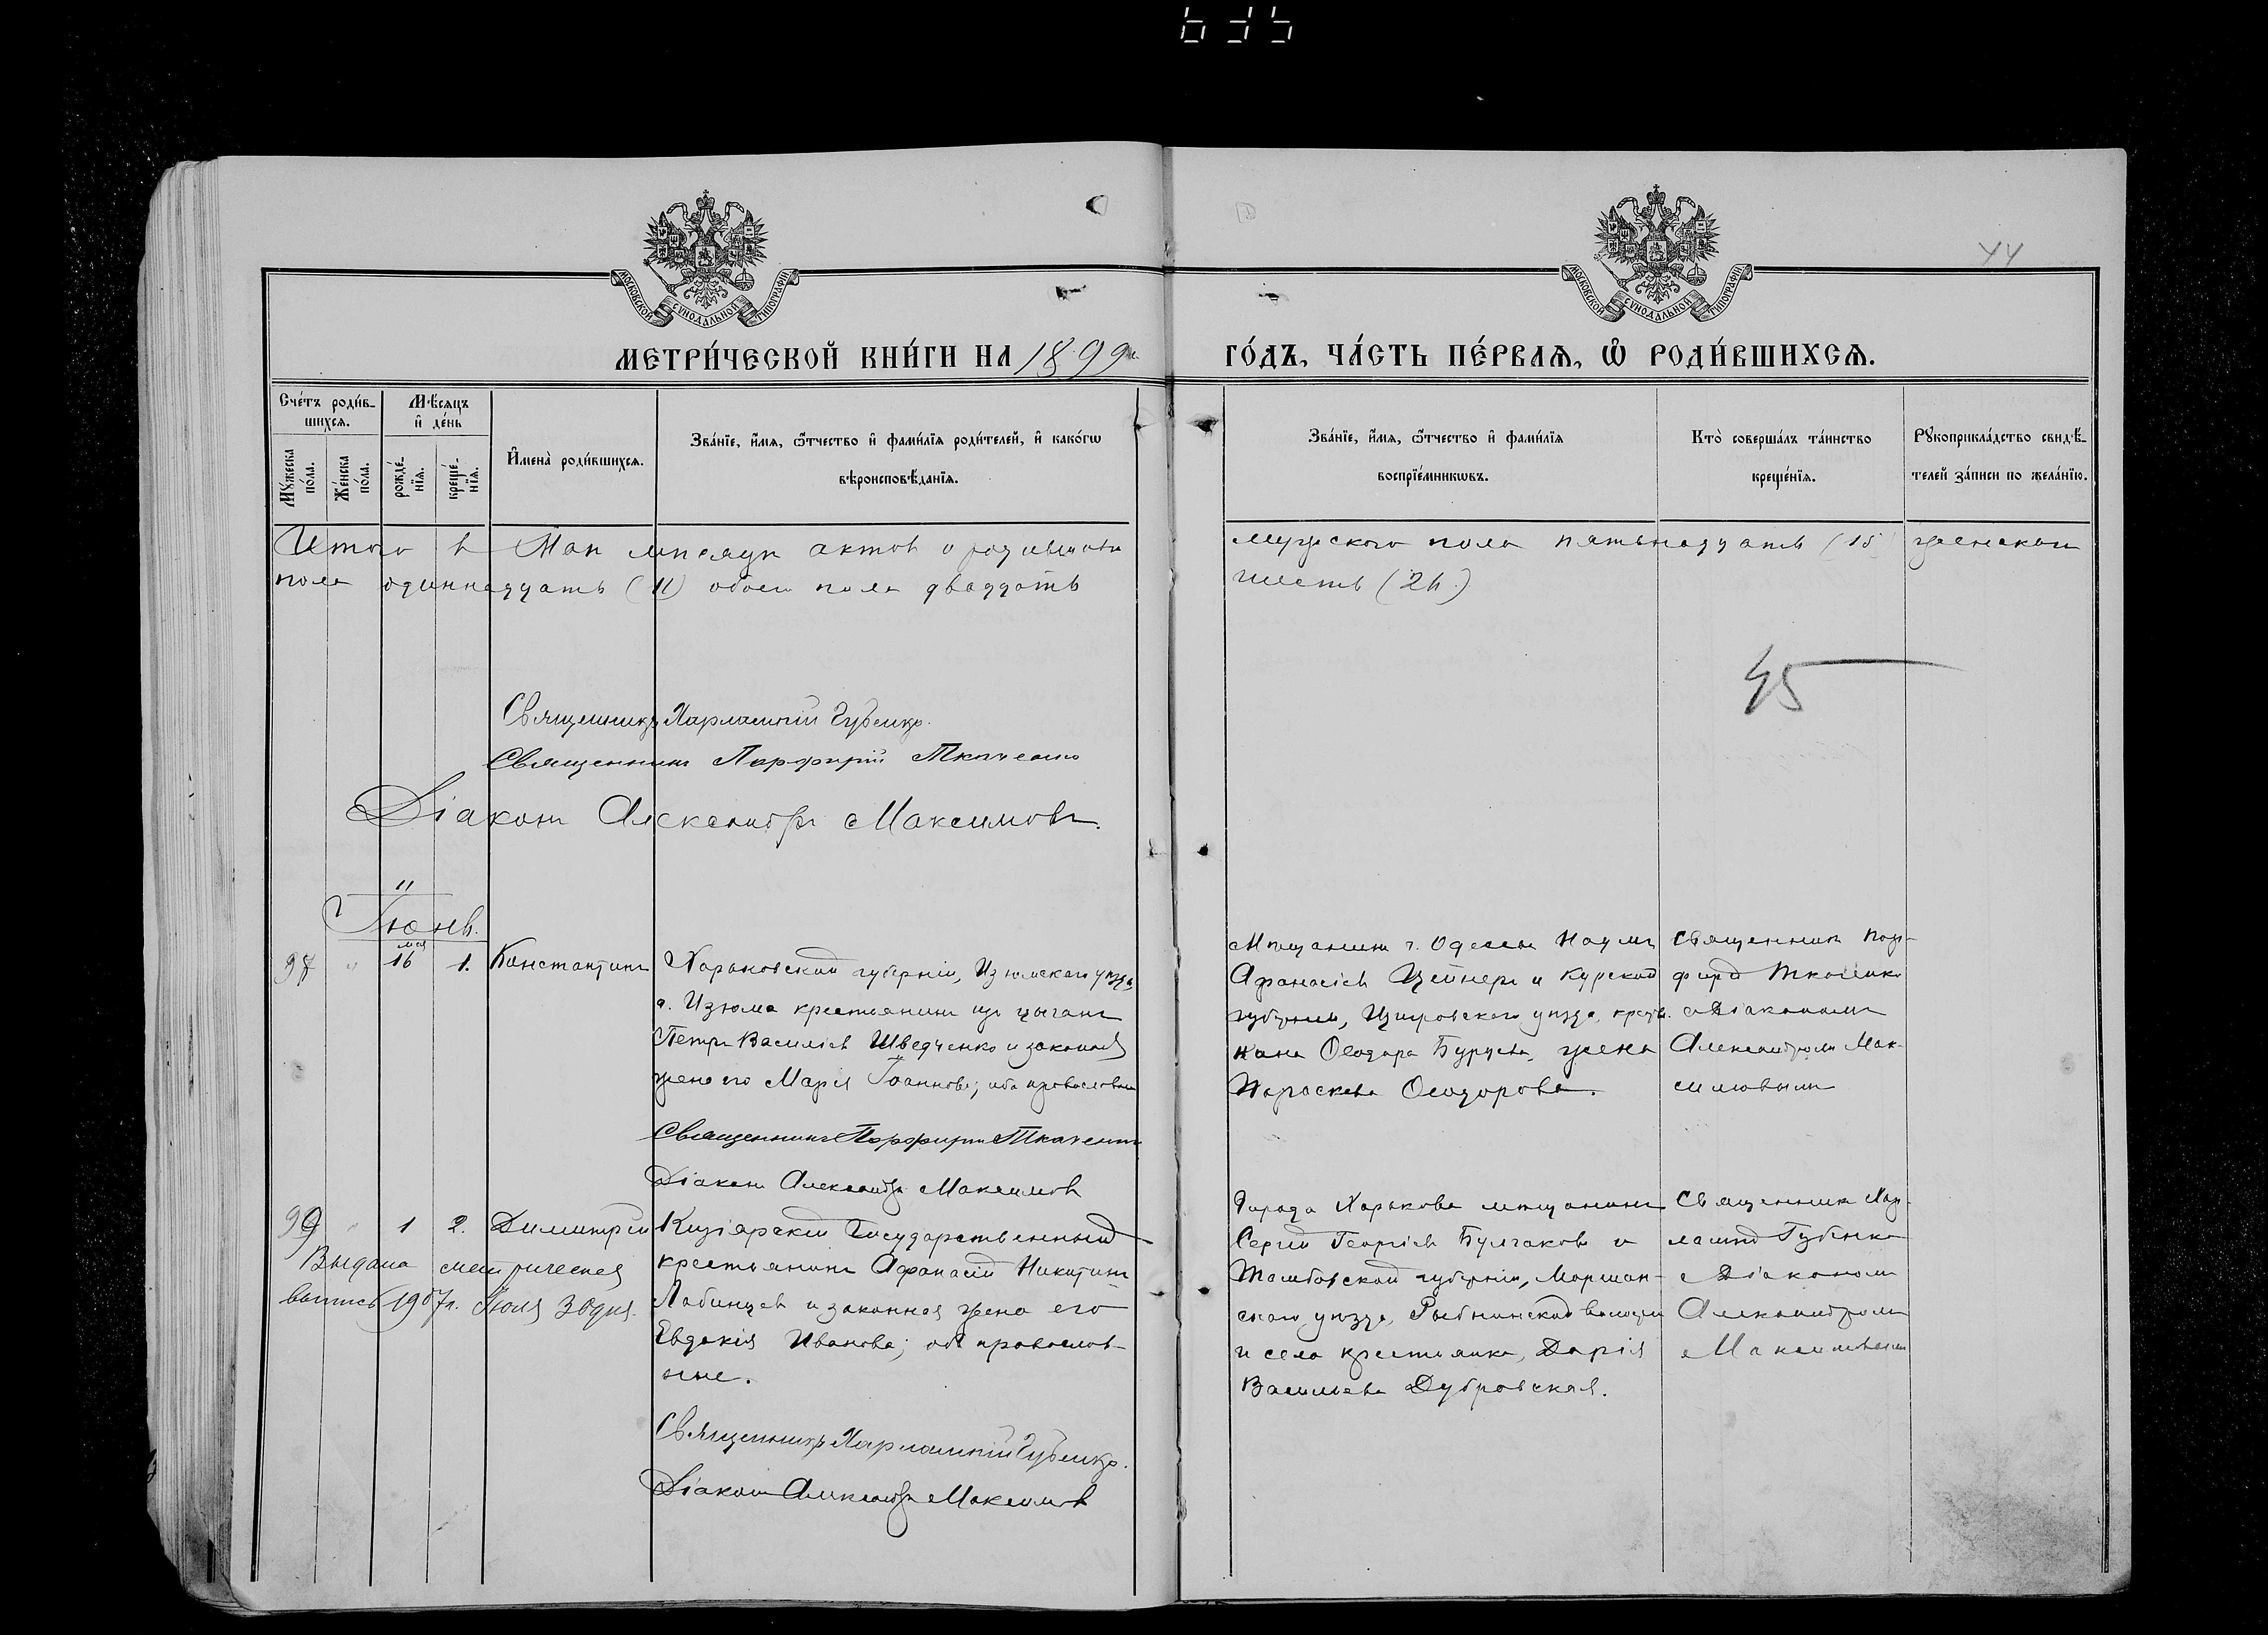 МОСКОВСКОЙ СУНОДАЛЬНОЙ ТИПОГРАФІИ
МОСКОВСКОЙ СУНОДАЛЬНОЙ ТИПОГРАФІИ
44
МЕТРИ́ЧЕСКОЙ КНИ́ГИ НА 1899
ГО́ДЪ, ЧА́СТЬ ПЕ́РВАѦ, Ѽ РОДИ́ВШИХСѦ.
Сче́тъ роди́в-
шихсѧ.
Мѣ́сяцъ
и҆ де́нь
Мꙋ́жеска
по́ла.
Же́нска
по́ла.
рожде́-
нїѧ.
креще́-
нїѧ.
И҆мена̀ роди́вшихсѧ.
Зва́нїе, и҆́мѧ, ѻ҆́тчество и҆ фами́лїѧ роди́телей, и҆ како́гѡ
вѣроисповѣ́данїѧ.
Зва́нїе, и҆́мѧ, ѻ҆́тчество и҆ фами́лїѧ
воспрїе́мникѡвъ.
Кто̀ соверша́лъ та́инство
креще́нїѧ.
Рꙋкоприкла́дство свидѣ́-
телей за́писи по жела́нїю.
Итого в Мае месяце актов о родившихся мужеского пола пятьнадцать (15) женского
пола одиннадцать (11) обоего пола двадцать шесть (26)
45
Священникъ Харлампій Губенко.
Священникъ Порфирій Ткаченко
Діаконъ Александръ Максимовъ.
Іюнь.
98 " мая 16 1. Константинъ
Харьковской губерніи, Изюмскаго уезда
г. Изюма крестьянинъ изъ цыганъ
Петръ Василіев Шведченко и законная
жена его Марія Іоаннова; оба православные
Священникъ Порфирій Ткаченко
Діаконъ Александръ Максимов
Мещанинъ г. Одессы Наумъ
Афанасіев Цейнеръ и Курской
губерніи, Щигровскаго уезда, крестья-
нина Ѳеодора Буруева, жена
Параскева Ѳеодорова.
Священник Пор-
фирій Ткаченко
с Діакономъ
Александромъ Мак-
симовымъ
99 " 1 2. Димитрій
Выдана метрическая
выпись 1907г. Іюля 30 дня.
Кизлярскій Государственный
крестьянинъ Афанасій Никитинъ
Лабинцев и законная жена его
Евдокія Иванова; оба православ-
ные.
Священникъ Харлампій Губенко.
Діаконъ Александръ Максимов
Города Харькова мещанинъ
Сергій Георгіев Булгаков и
Тамбовской губерніи, Моршан-
скаго уезда, Рыбинской волости
и села крестьянка, Дарія
Васильева Дубровская.
Священник Хар-
лампій Губенко
с Діаконом
Александромъ
Максимовымъ